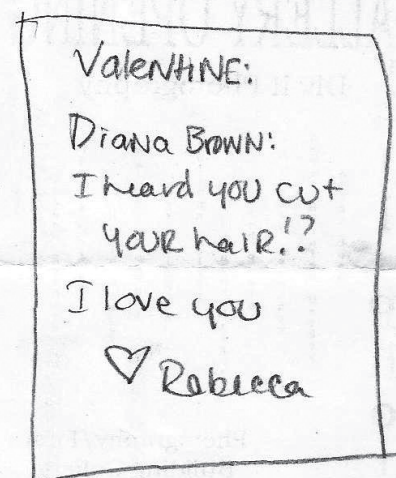 Valentine:
Diana Brown:
I heard you cut
your hair!?
I love you
♡ Rebecca